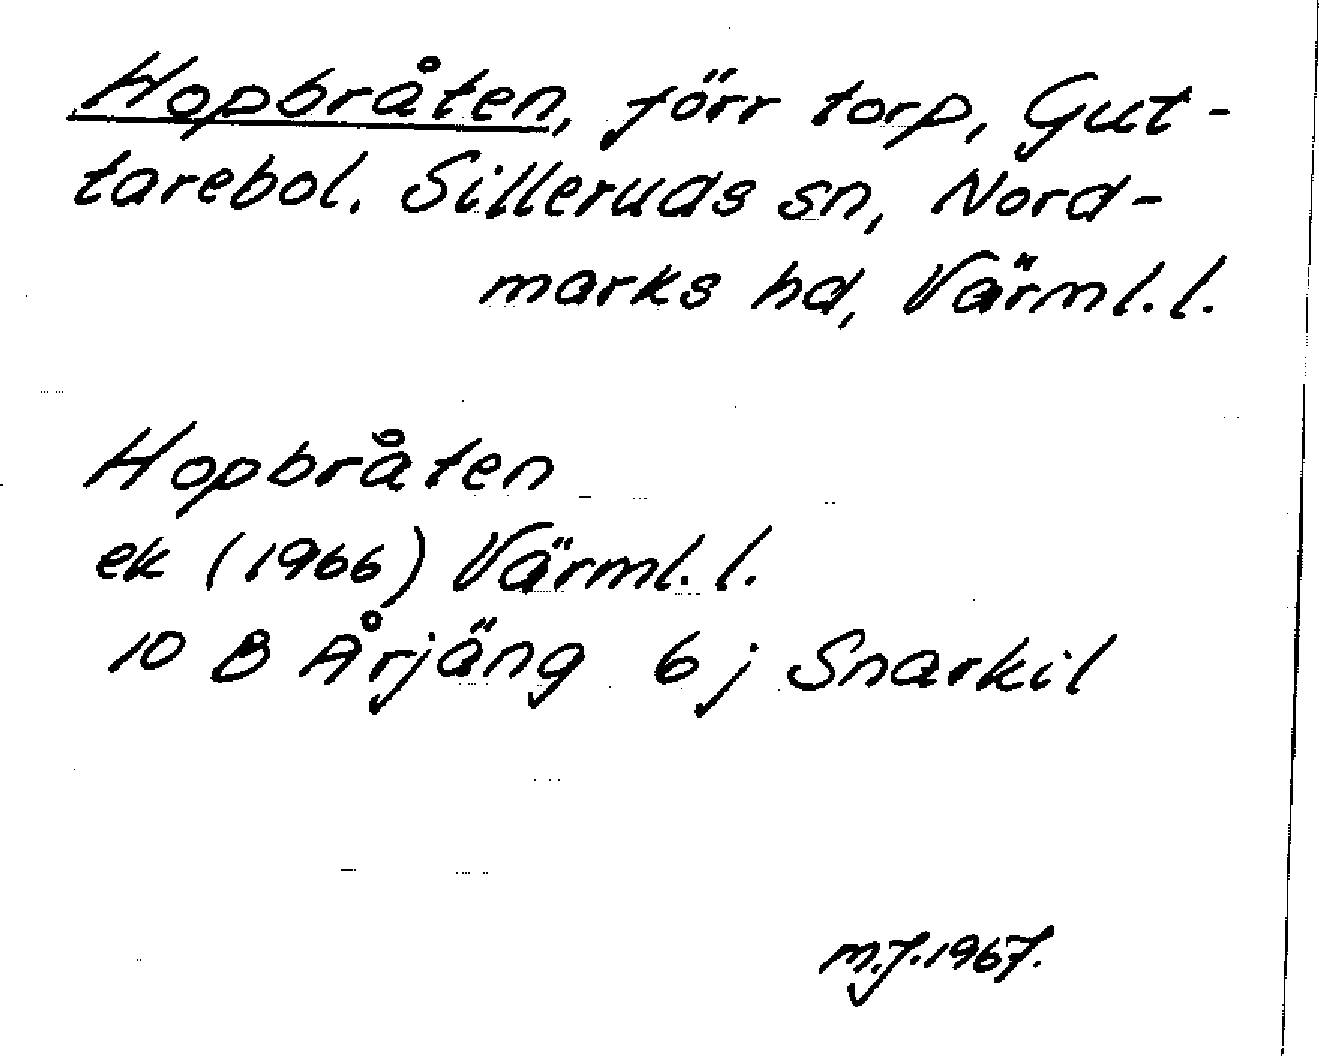 Hopbråten, förr torp, Gut-
tarebol. Silleruds sn, Nord-
marks hd, Värml. l.
Hopbråten
ek (1966) Värml. l.
10 B Årjäng 6 j Snarkil
M.J. 1967.